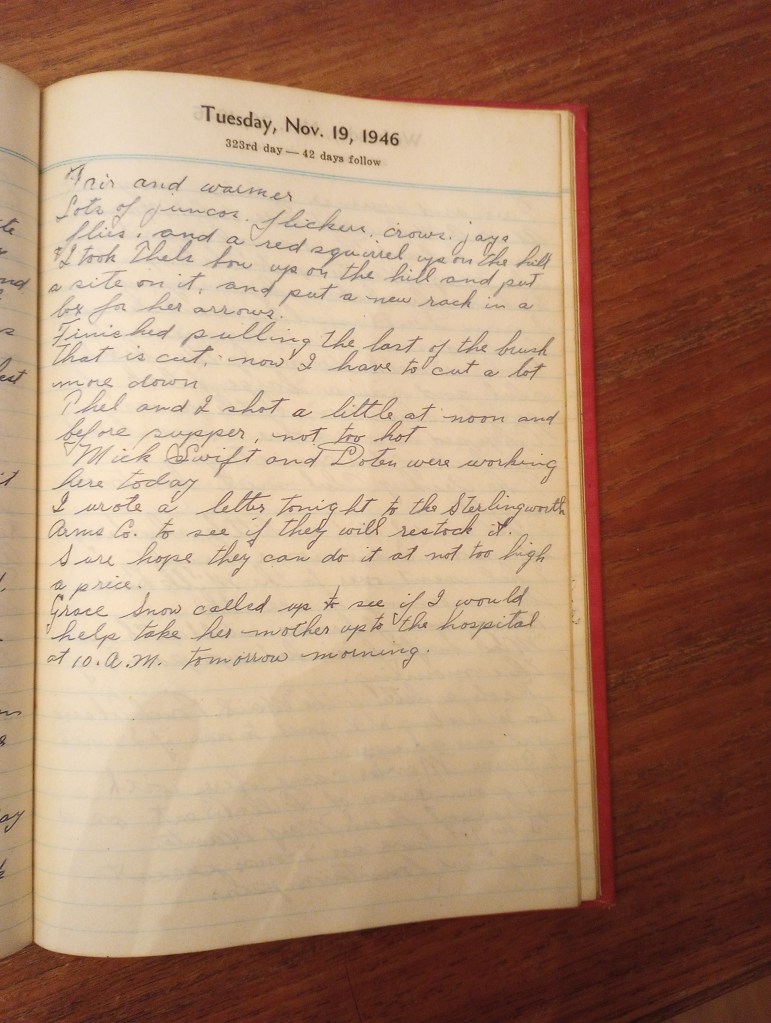 Tuesday, Nov. 19, 1946
323rd day — 42 days follow
Fair and warmer
Lots of juncos, flickers, crows, jays
flies, and a red squirrel up on the hill
I took Thels bow up on the hill and put
a site on it, and put a new rack in a
box for her arrows.
Finished pulling the last of the brush
that is cut, now I have to cut a lot
more down
Thel and I shot a little at noon and
before supper, not too hot
Mick Swift and Doten were working
here today
I wrote a letter tonight to the Sterlingworth
Arms Co. to see if they will restock it.
Sure hope they can do it at not too high
a price.
Grace Snow called up to see if I would
help take her mother up to the hospital
at 10. A.M. tomorrow morning.